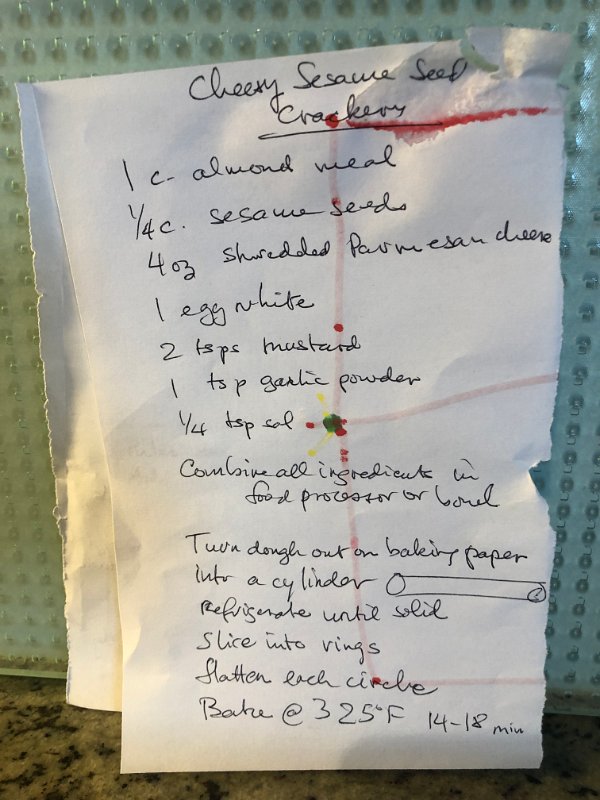 Cheesy Sesame Seed
Crackers
1 c. almond meal
1/4 c. sesame seeds
4 oz shredded Parmesan cheese
1 egg white
2 tsps mustard
1 tsp garlic powder
1/4 tsp sal
Combine all ingredients in
food processor or bowl
Turn dough out on baking paper
Into a cylinder
Refrigerate until solid
Slice into rings
flatten each circle
Bake @ 325°F 14-18 min